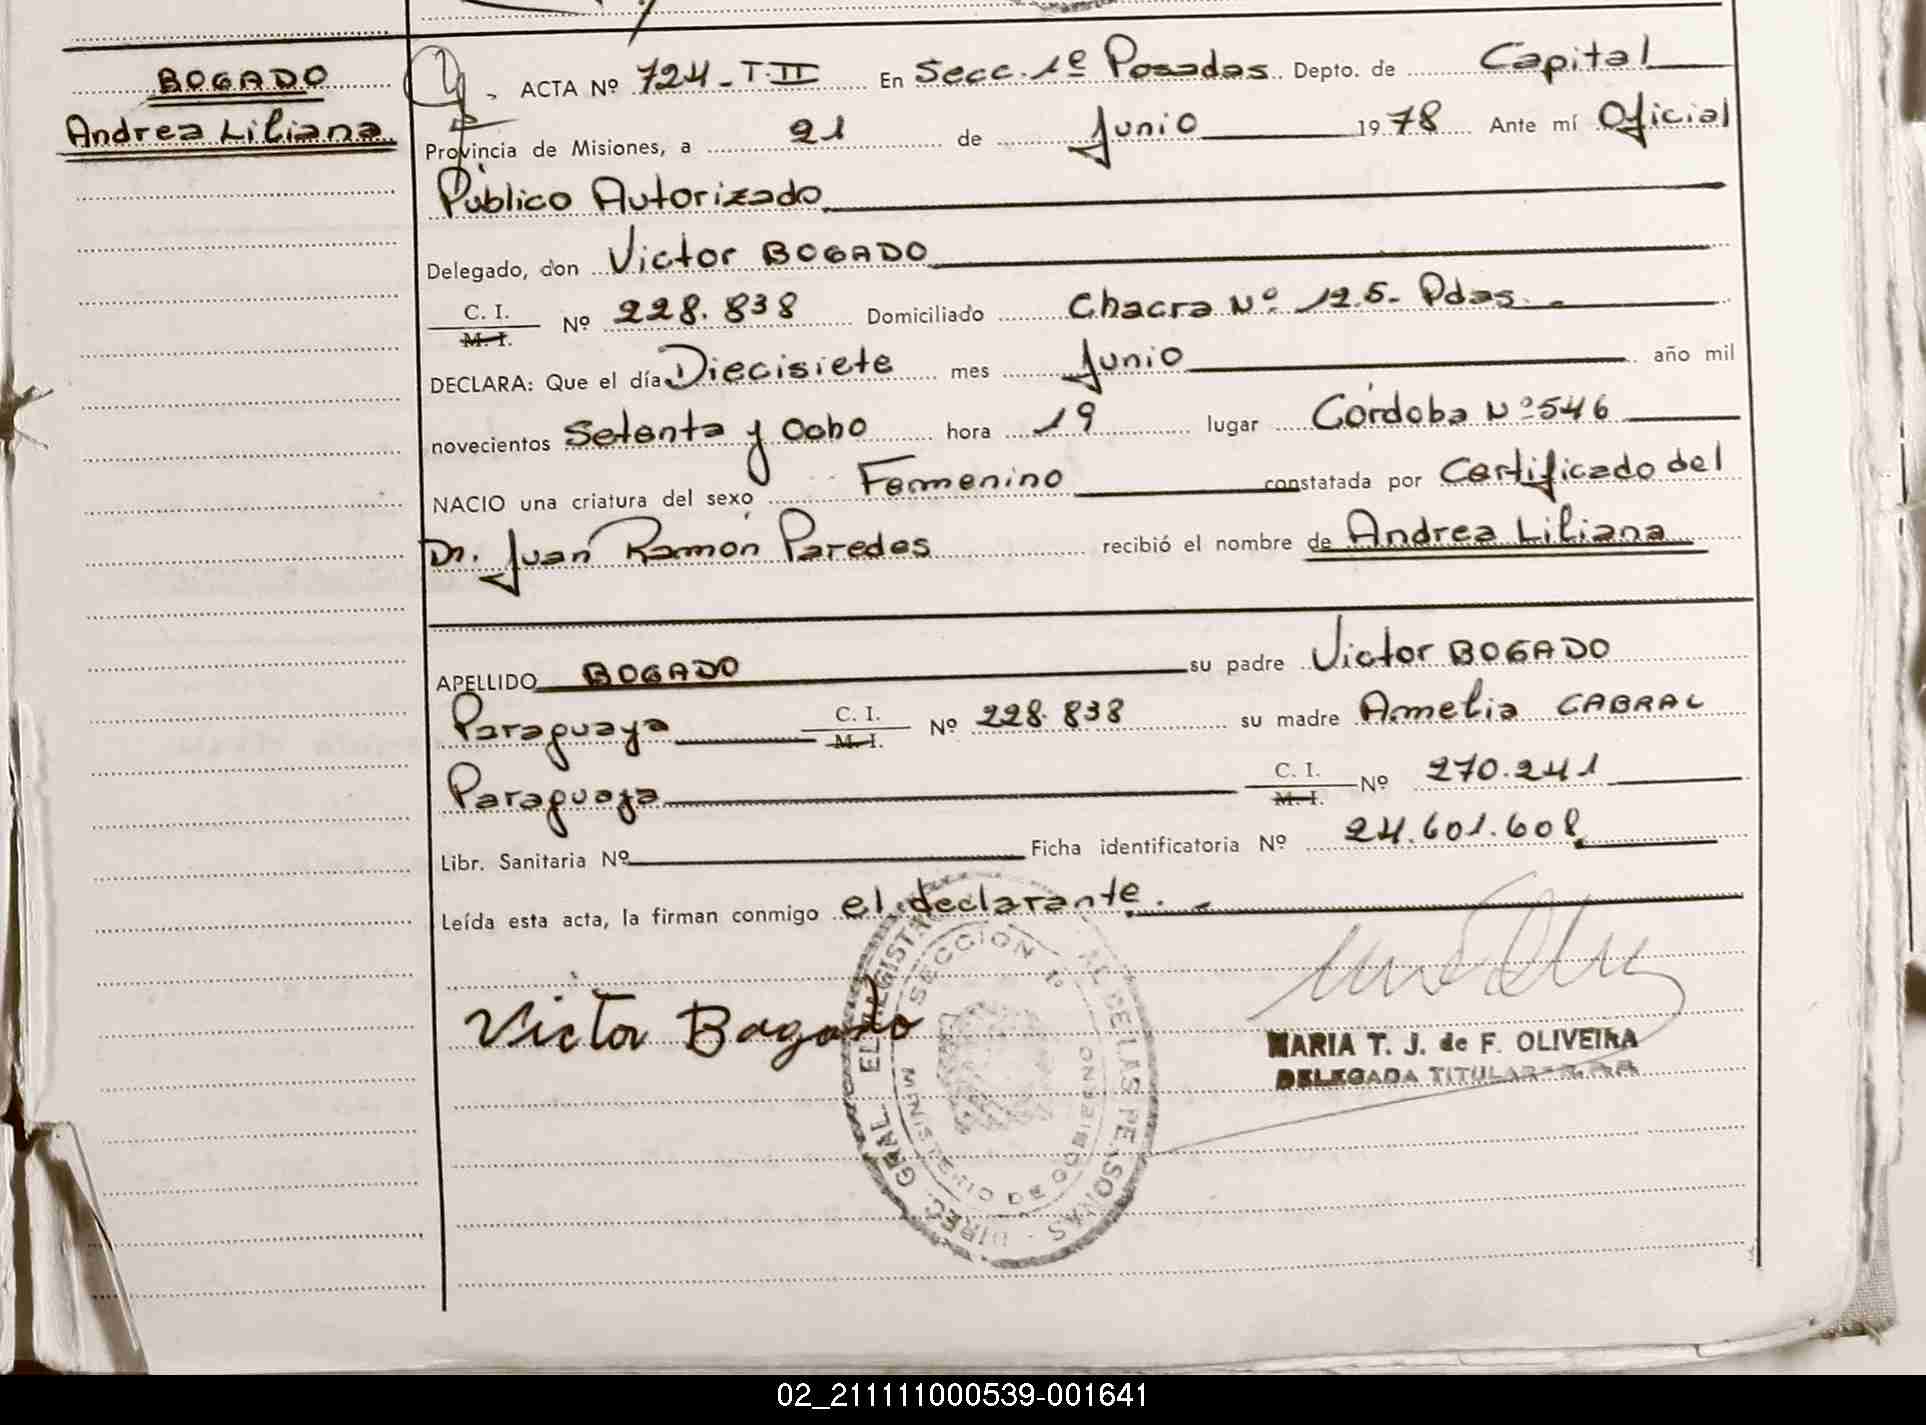 BOGADO
Andrea Liliana
ACTA Nº 724-T-II En Secc. 1º Posadas Depto. de Capital
Provincia de Misiones, a 21 de Junio 1978 Ante mí Oficial
Público Autorizado
Delegado, don Victor BOGADO
C. I. M. I. Nº 228.838 Domiciliado Chacra Nº 125- Pdas.
DECLARA: Que el día Diecisiete mes Junio año mil
novecientos Setenta y Ocho hora 19 lugar Córdoba Nº 546
NACIO una criatura del sexo Femenino constatada por Certificado del
Dr. Juan Ramón Paredes recibió el nombre de Andrea Liliana
APELLIDO BOGADO su padre Victor BOGADO
Paraguaya C. I. M. I. Nº 228.838 su madre Amelia CABRAL
Paraguaya C. I. M. I. Nº 270.241
Libr. Sanitaria Nº Ficha identificatoria Nº 24.601.608
Leída esta acta, la firman conmigo el declarante.
Victor Bogado
SECCION 1º
MINISTERIO DE GOBIERNO
MARIA T. J. de F. OLIVEIRA
DELEGADA TITULAR
02_211111000539-001641